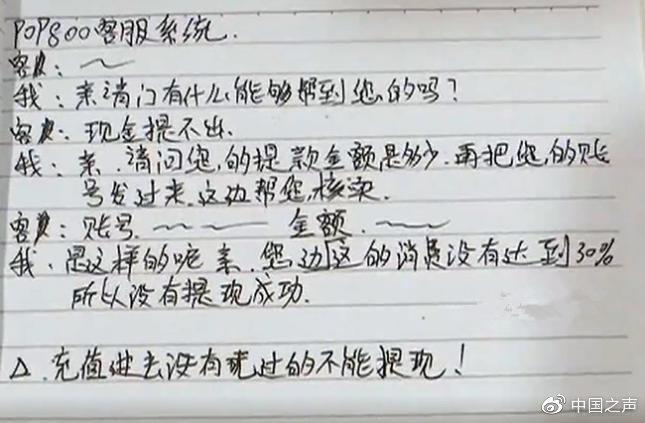 POP800客服系统.
客户:~
我:亲请问有什么能够帮到您的吗?
客户:现金提不出.
我:亲.请问您的提款金额是多少.再把您的账
号发过来.这边帮您核实.
客户:账号.~ ~ 金额.~
我.是这样的呢亲.您边这的消费没有达到30%
所以没有提现成功.
△.充值进去没有玩过的不能提现!
@中国之声